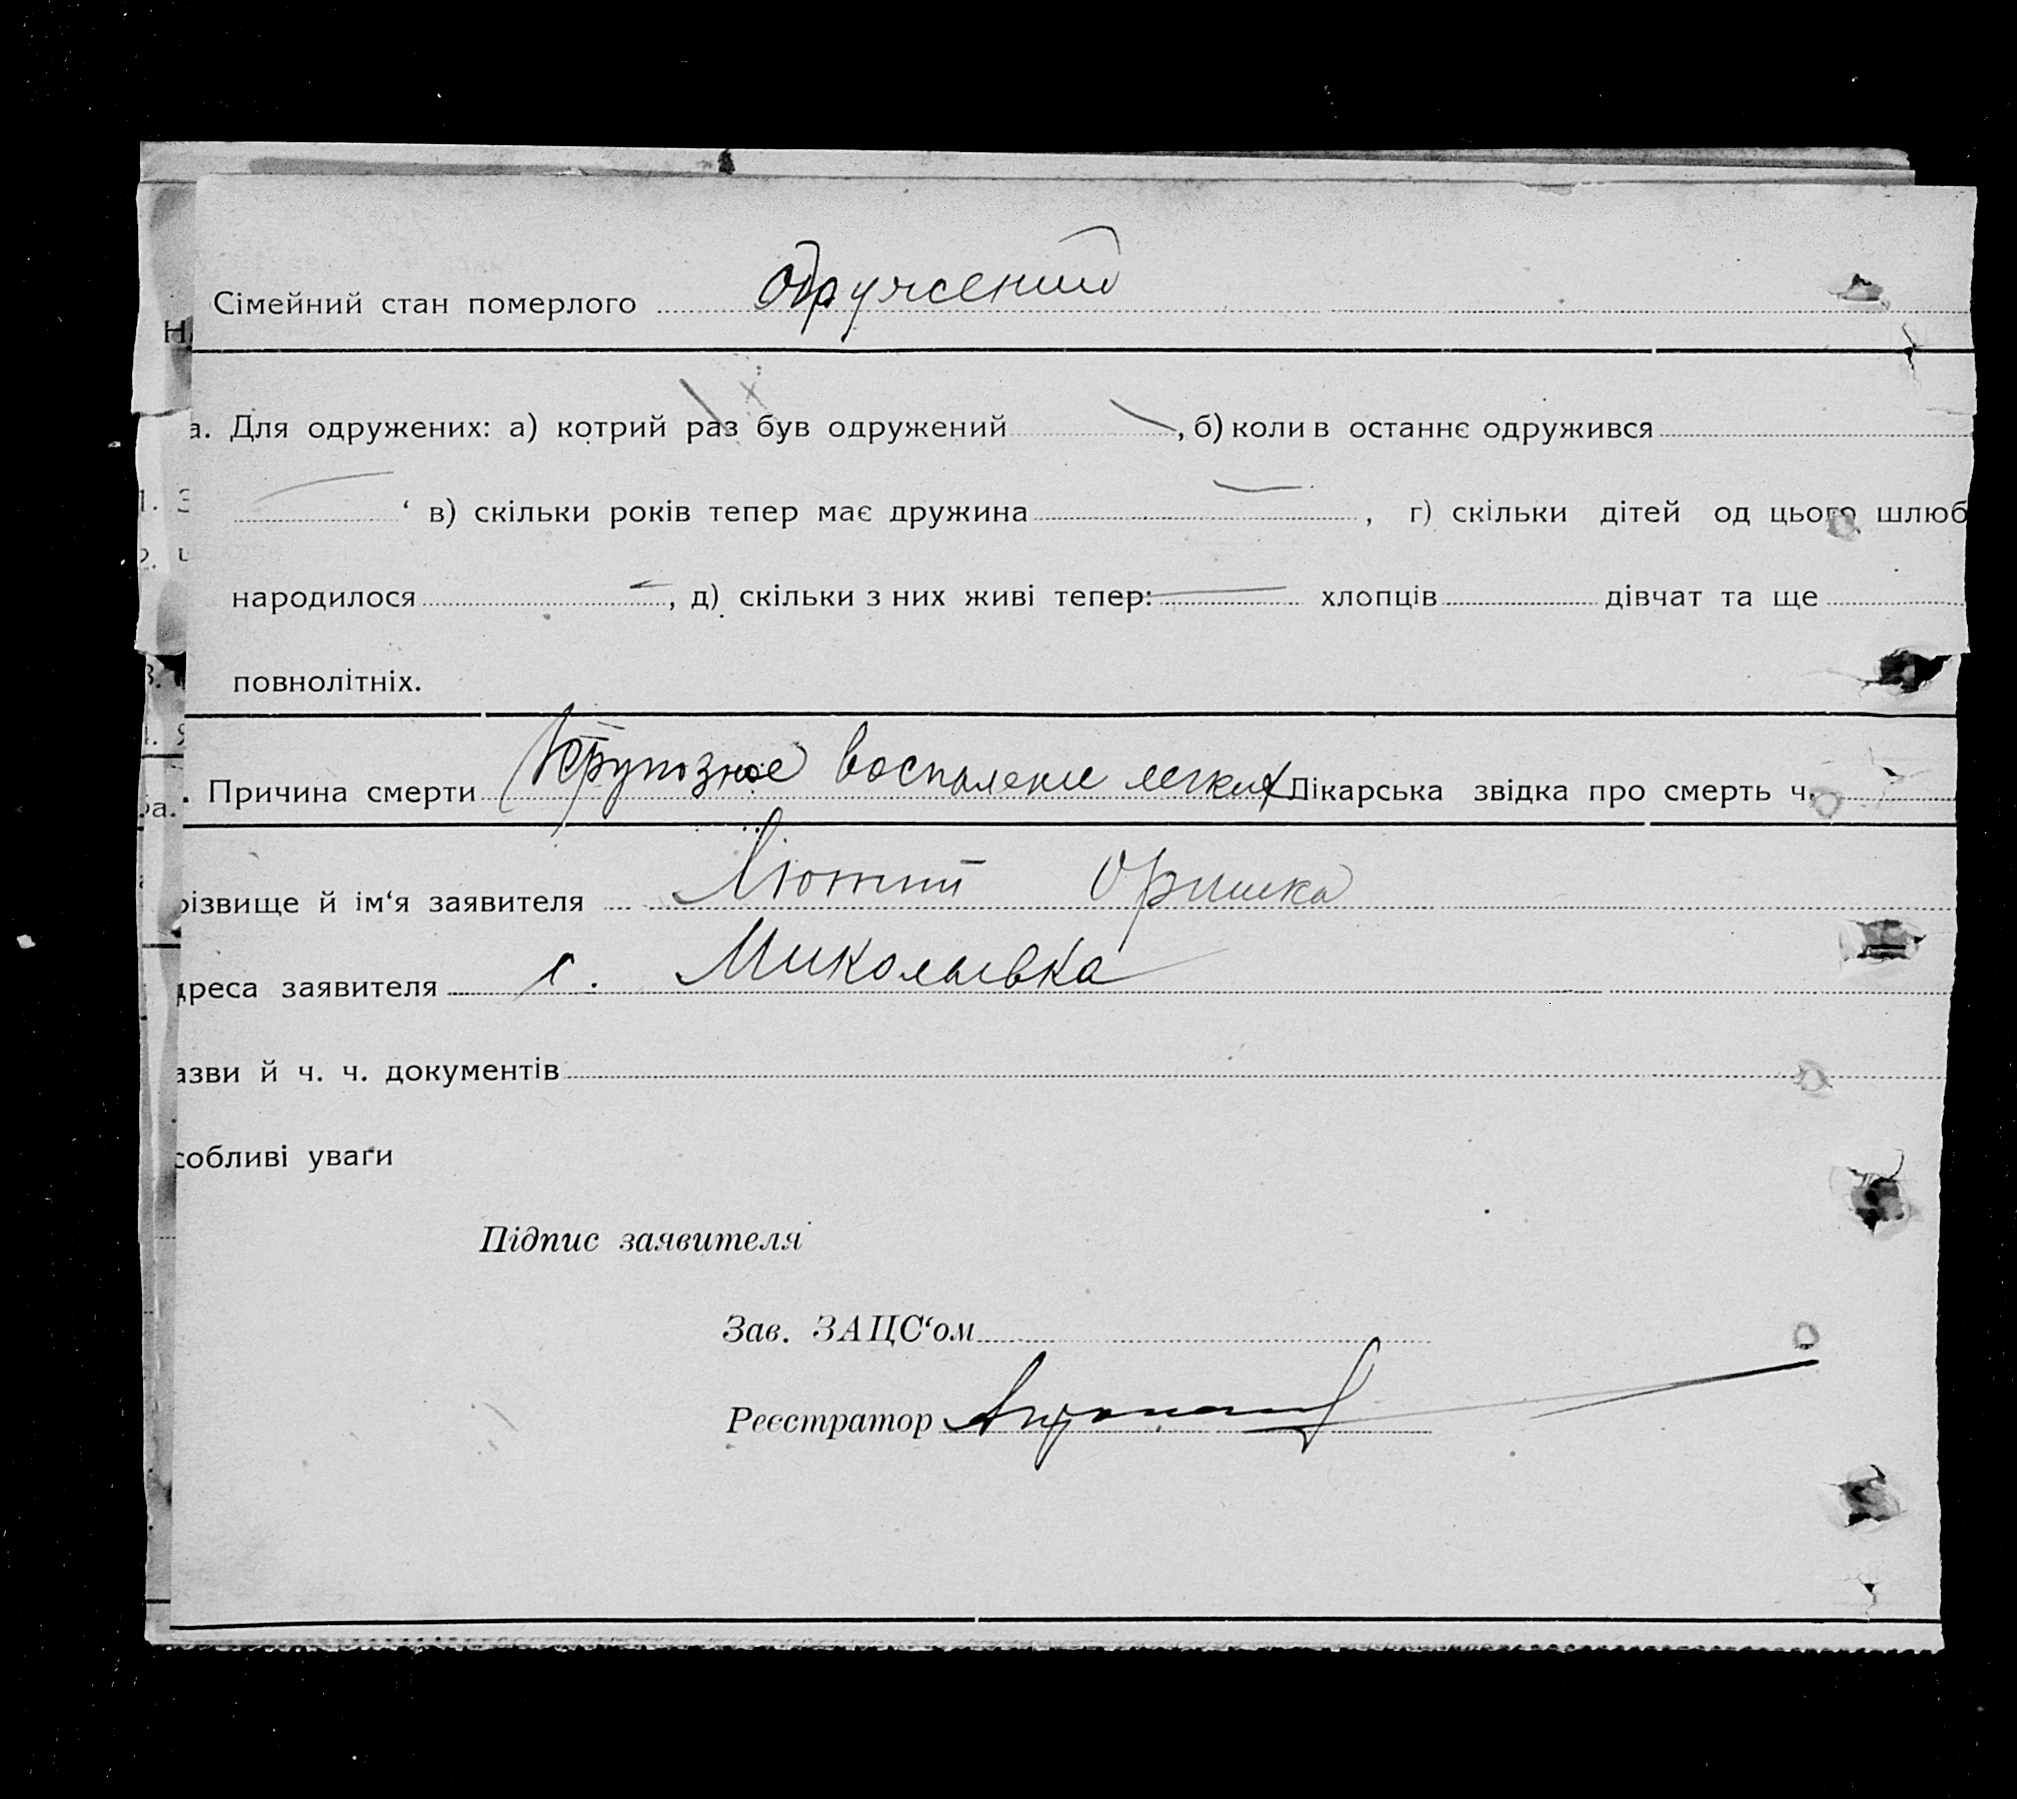 Сімейний стан померлого одружений
а. Для одружених: а) котрий раз був одружений , б) коли в останнє одружився
в) скільки років тепер має дружина , г) скільки дітей од цього шлюб
народилося , д) скільки з них живі тепер: хлопців дівчат та ще
повнолітніх.
Причина смерти Крупозное воспаление легких Лікарська звідка про смерть ч.
різвище й ім‘я заявителя Лютий Оришка
дреса заявителя с. Миколаївка
азви й ч. ч. документів
собливі уваги
Підпис заявителя
Зав. ЗАЦС‘ом
Реєстратор